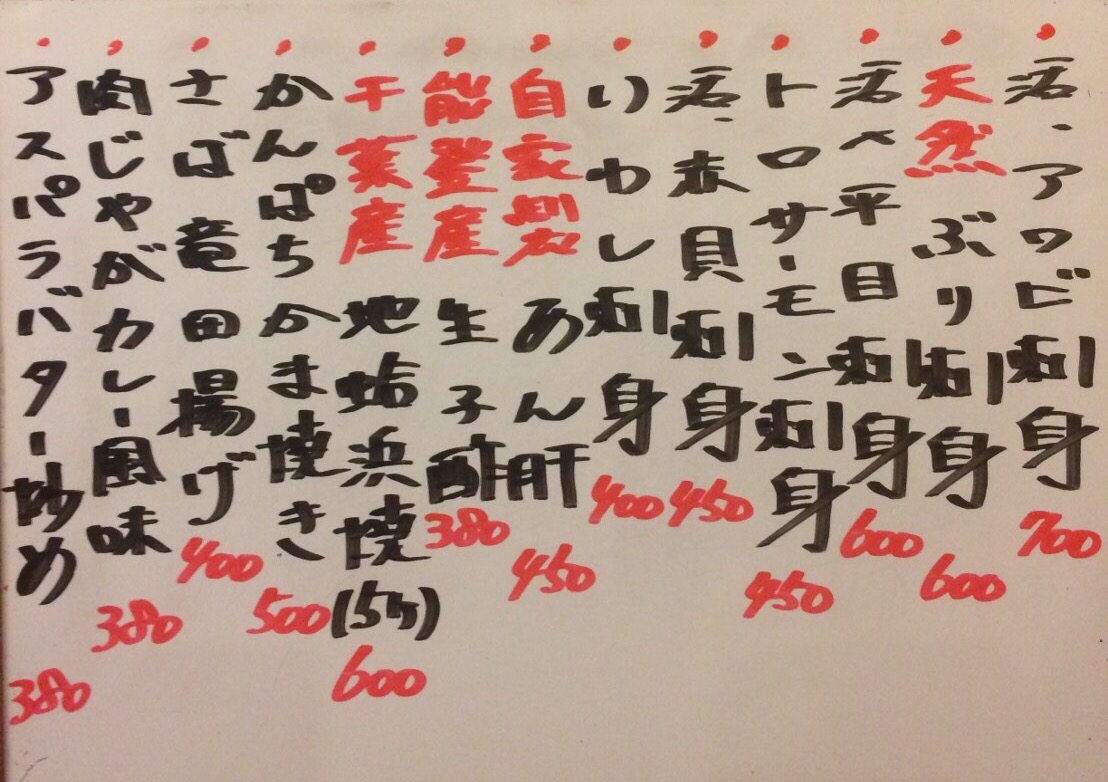 ・活・アワビ刺身 700
・天然ぶり刺身 600
・活〆平目刺身 600
・トロサーモン刺身 450
・活・赤貝刺身 450
・いわし刺身 400
・自家製あん肝 450
・能登産生子酢 380
・千葉産地蛤浜焼(5ケ) 600
・かんぱちかま焼き 500
・さば竜田揚げ 400
・肉じゃがカレー風味 380
・アスパラバター炒め 380